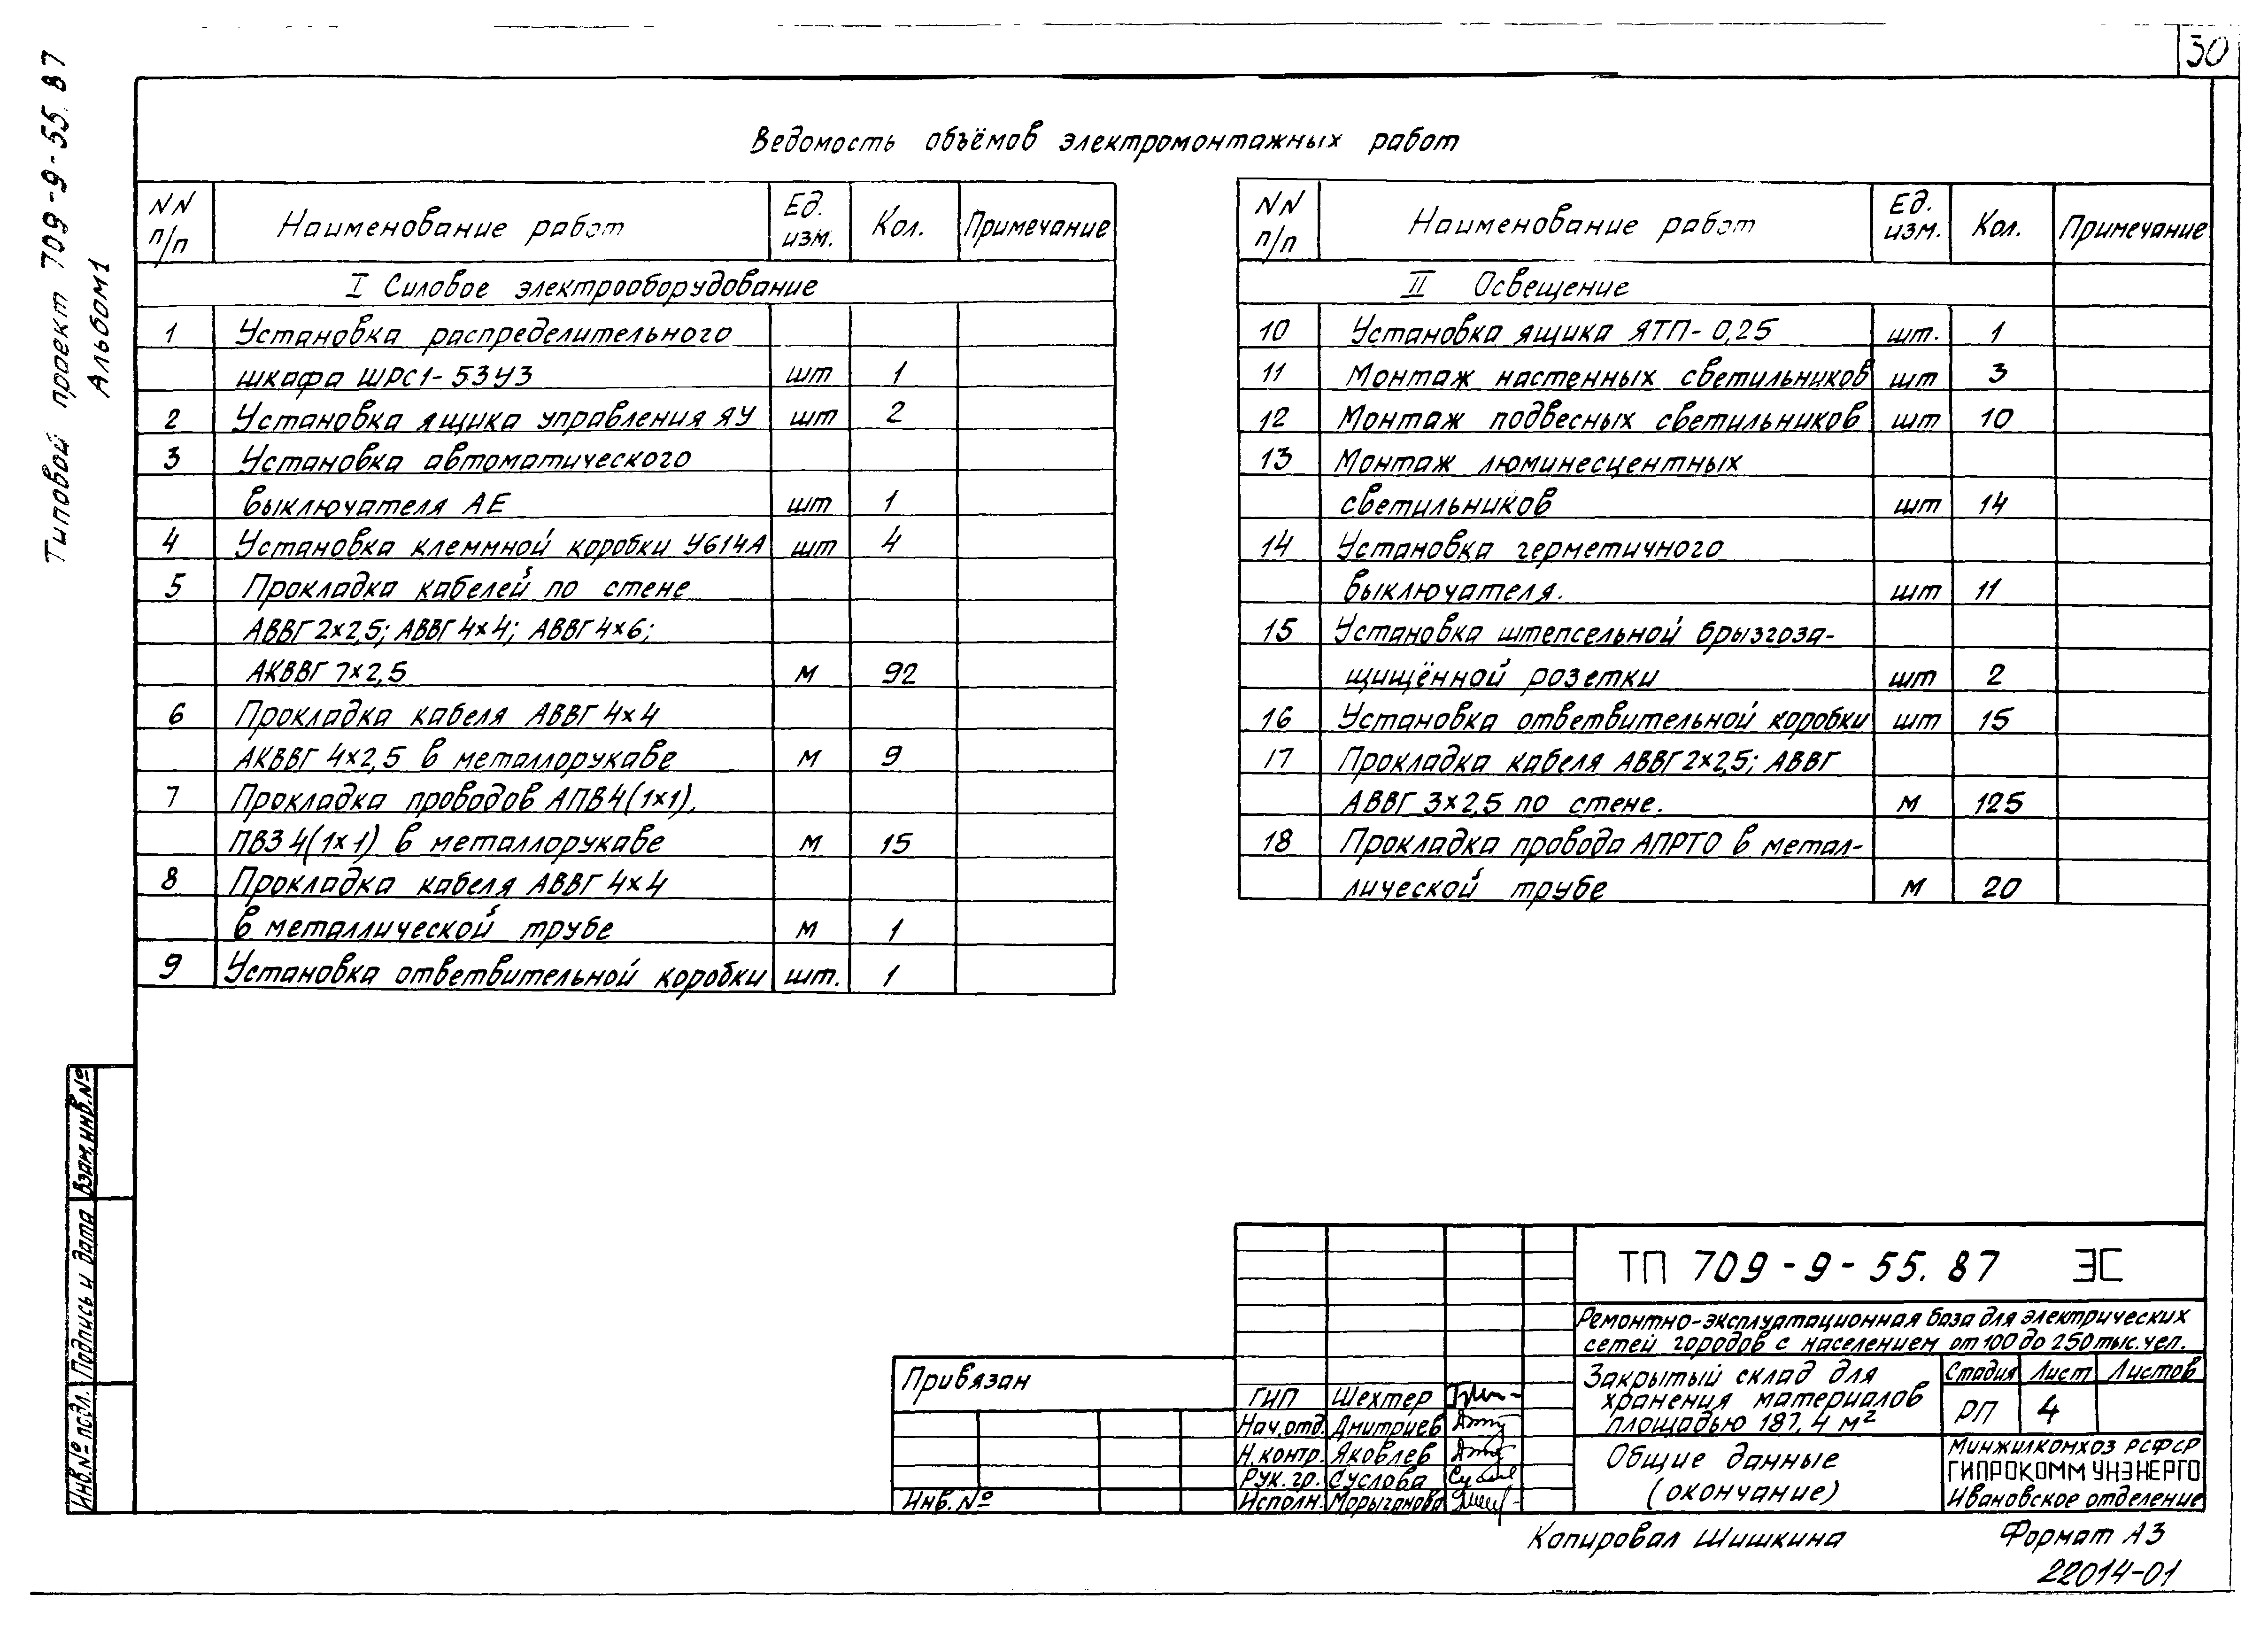 30
Типовой проект 709-9-55.87
Альбом1
Ведомость объёмов электромонтажных работ
NN п/п Наименование работ Ед. изм. Кол. Примечание
I Силовое электрооборудование
1 Установка распределительного
шкафа ШРС1-53У3 шт 1
2 Установка ящика управления ЯУ шт 2
3 Установка автоматического
выключателя АЕ шт 1
4 Установка клеммной коробки У614А шт 4
5 Прокладка кабелей по стене
АВВГ 2x2,5; АВВГ 4x4; АВВГ 4x6;
АКВВГ 7x2,5 м 92
6 Прокладка кабеля АВВГ 4x4
АКВВГ 4x2,5 в металлорукаве м 9
7 Прокладка проводов АПВ4(1x1),
ПВ3 4(1x1) в металлорукаве м 15
8 Прокладка кабеля АВВГ 4x4
в металлической трубе м 1
9 Установка ответвительной коробки шт. 1
NN п/п Наименование работ Ед. изм. Кол. Примечание
II Освещение
10 Установка ящика ЯТП-0,25 шт. 1
11 Монтаж настенных светильников шт 3
12 Монтаж подвесных светильников шт 10
13 Монтаж люминесцентных
светильников шт 14
14 Установка герметичного
выключателя. шт 11
15 Установка штепсельной брызгоза-
щищённой розетки шт 2
16 Установка ответвительной коробки шт 15
17 Прокладка кабеля АВВГ 2x2,5; АВВГ
АВВГ 3x2,5 по стене. м 125
18 Прокладка провода АПРТО в метал-
лической трубе м 20
Взам.инв.№
Подпись и дата
Инв.№ подл.
Привязан
Инв.№
ГИП Шехтер
Нач.отд. Дмитриев
Н.контр. Яковлев
Рук.гр. Суслова
Исполн. Морыганова
ТП 709-9-55.87 ЭС
Ремонтно-эксплуатационная база для электрических
сетей городов с населением от 100 до 250 тыс.чел.
Закрытый склад для
хранения материалов
площадью 187,4 м²
Стадия Лист Листов
РП 4
Общие данные
(окончание)
Минжилкомхоз РСФСР
ГИПРОКОММУНЭНЕРГО
Ивановское отделение
Копировал Шишкина
Формат А3
22014-01